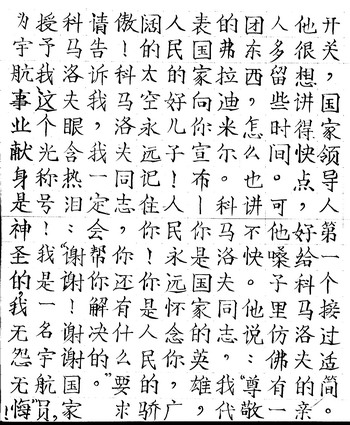 开关，国家领导人第一个接过适简。
他很想讲得快点，好给科马洛夫的亲
人多留些时间。可他嗓子里仿佛有一
团东西，怎么也讲不快。他说：“尊敬
的弗拉迪米尔。科马洛夫同志，我代
表国家向你宣布—你是国家的英雄，
人民的好儿子！人民永远怀念你，广
阔的太空永远记住你！你是人民的骄
傲！科马洛夫同志，你还有什么要求
请告诉我，我一定会帮你解决的。”
科马洛夫眼含热泪：“谢谢！谢谢国家
授予我这个光称号！我是一名宇航员，
为宇航事业献身是神圣的我无怨无悔”！